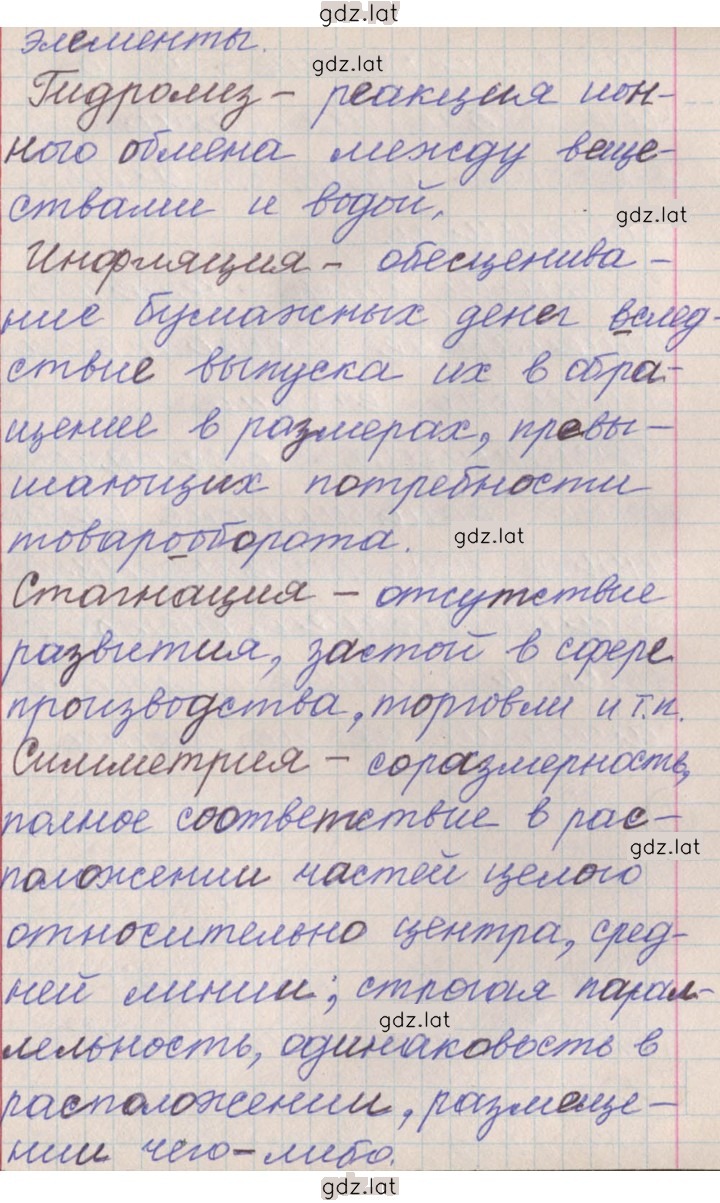 gdz.lat
элементы.
gdz.lat
Гидролиз – реакция ион-
ного обмена между веще-
ствами и водой.
gdz.lat
Инфляция – обесценива-
ние бумажных денег вслед-
ствие выпуска их в обра-
щение в размерах, превы-
шающих потребности
товарооборота.
gdz.lat
Стагнация – отсутствие
развития, застой в сфере
производства, торговли и т.п.
Симметрия – соразмерность,
полное соответствие в рас-
gdz.lat
положении частей целого
относительно центра, сред-
ней линии; строгая парал-
gdz.lat
лельность, одинаковость в
расположении, размеще-
нии чего-либо.
gdz.lat